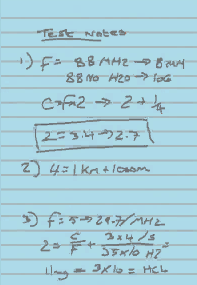 Test Notes
1) f= 88 MHz → 8 MM
88 No H20 → 106
C=fx2 → 2 + 1/4
2=3.4 → 2.7
2) 4=1km +1000m
3) f=5→29.7/MHz
2= C/F + 3x4/s =
11mg = 3x10 = HCL